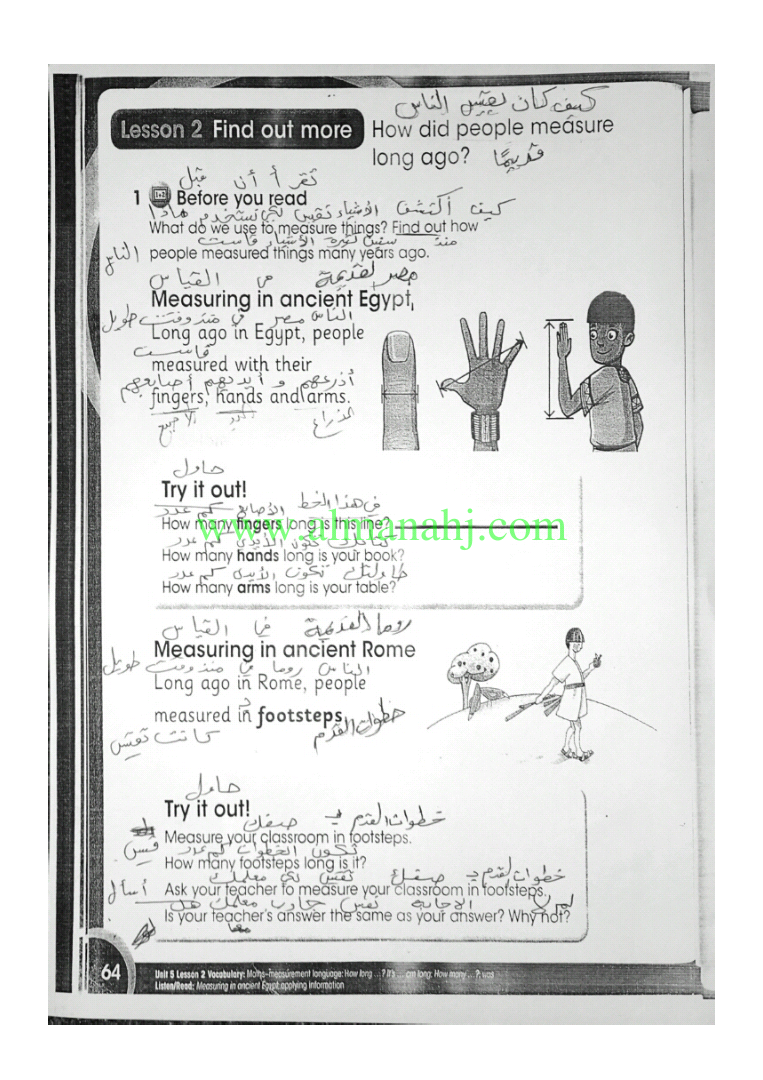 كيف كان يقيس الناس
Lesson 2 Find out more
How did people measure
long ago? قديمًا
تقرأ أن قبل
1 Before you read
كيف أكتشف الأشياء تقيس لكي نستخدم ماذا
What do we use to measure things? Find out how
منذ سنين كثيرة الأشياء قاست
الناس people measured things many years ago.
مصر القديمة في القياس
Measuring in ancient Egypt
الناس مصر في منذ وقت طويل
Long ago in Egypt, people
قاست
measured with their
أذرعهم و أيديهم أصابعهم
fingers, hands and arms.
الذراع اليد الأصبع
حاول
Try it out!
في هذا الخط الأصابع كم عدد
How many fingers long is this line?
www.almanahj.com
كتابك تكون الأيدي كم عدد
How many hands long is your book?
طاولتك تكون الأيدي كم عدد
How many arms long is your table?
روما القديمة في القياس
Measuring in ancient Rome
الناس روما في منذ وقت طويل
Long ago in Rome, people
measured in footsteps
كانت تقيس خطوات القدم
حاول
Try it out!
خطوات القدم بـ صفك
قس Measure your classroom in footsteps.
تكون الخطوات كم عدد
How many footsteps long is it?
خطوات القدم بـ صفك تقيس لكي معلمك
أسأل Ask your teacher to measure your classroom in footsteps.
الإجابة نفس جاوب معلمك هل
Is your teacher's answer the same as your answer? Why not?
64
Unit 5 Lesson 2 Vocabulary: Maths–measurement language: How long ...? It's ... cm long; How many ...? P. was
Listen/Read: Measuring in ancient Egypt; applying information